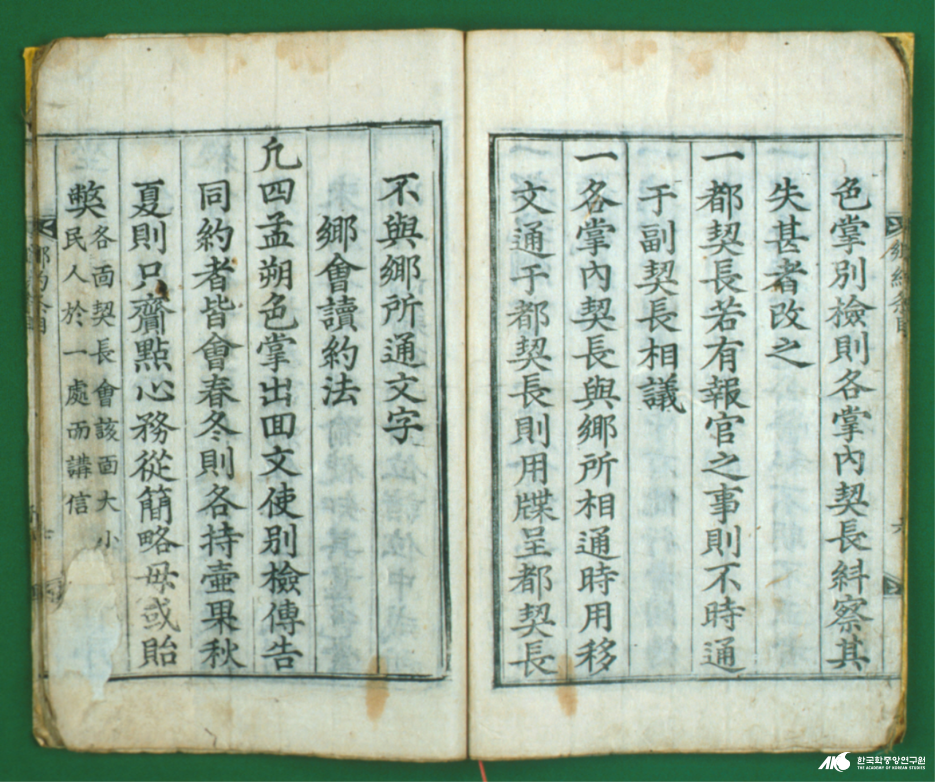 色掌別檢則各掌內契長糾察其
失甚者改之
一都契長若有報官之事則不時通
于副契長相議
一各掌內契長與鄉所相通時用移
文通于都契長則用牒呈都契長
不與鄉所通文字
鄉會讀約法
凡四孟朔色掌出回文使別檢傳告
同約者皆會春冬則各持壺果秋
夏則只齎點心務從簡略毋或貽
弊各面契長會該面大小
民人於一處而講信
한국학중앙연구원
THE ACADEMY OF KOREAN STUDIES